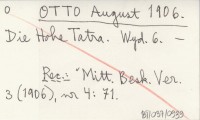 0 OTTO August 1906.
Die Hohe Tatra. Wyd. 6. —
Rec.: "Mitt. Besk. Ver.
3 (1906), nr 4: 71.